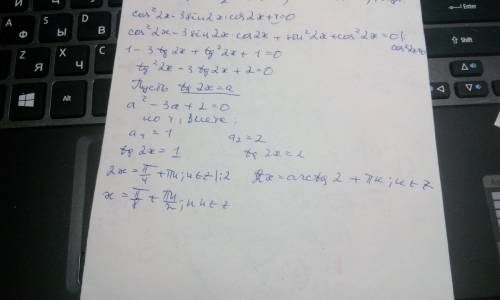 cos²2x-3sin2x·cos2x+1=0
cos²2x-3sin2x·cos2x+sin²2x+cos²2x=0 |:cos²2x≠0
1-3tg2x+tg²2x+1=0
tg²2x-3tg2x+2=0
Пусть tg2x=a
a²-3a+2=0
по т. Виета:
a₁=1 a₂=2
tg2x=1 tg2x=2
2x=π/4+πn; n∈z |:2 2x=arctg2+πn; n∈z
x=π/8+πn/2; n∈z